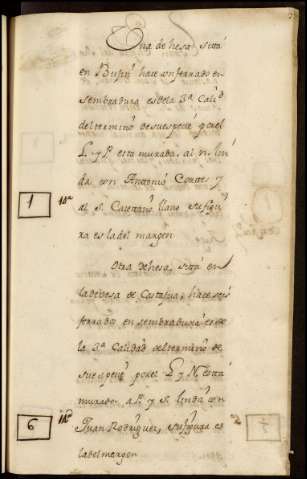 Una dehesa, sitta
en Busto hace un ferrado en
sembradura es de la 3ª Calid
del termino de su especie por el
L. y P. esta murada, al N. lin
da con Anttonio Couttes y
al S. Caiettano llano su figu
1 Mª ra es la del margen
Otra dehesa, sitta en
la devesa de Castañal hace seis
ferrados en sembradura es de
la 3ª Calidad del termino de
su especie por el L. y N. esta
murado, a P. y S. linda con
6 Mª Juan Rodriguez, su figura es
la del margen